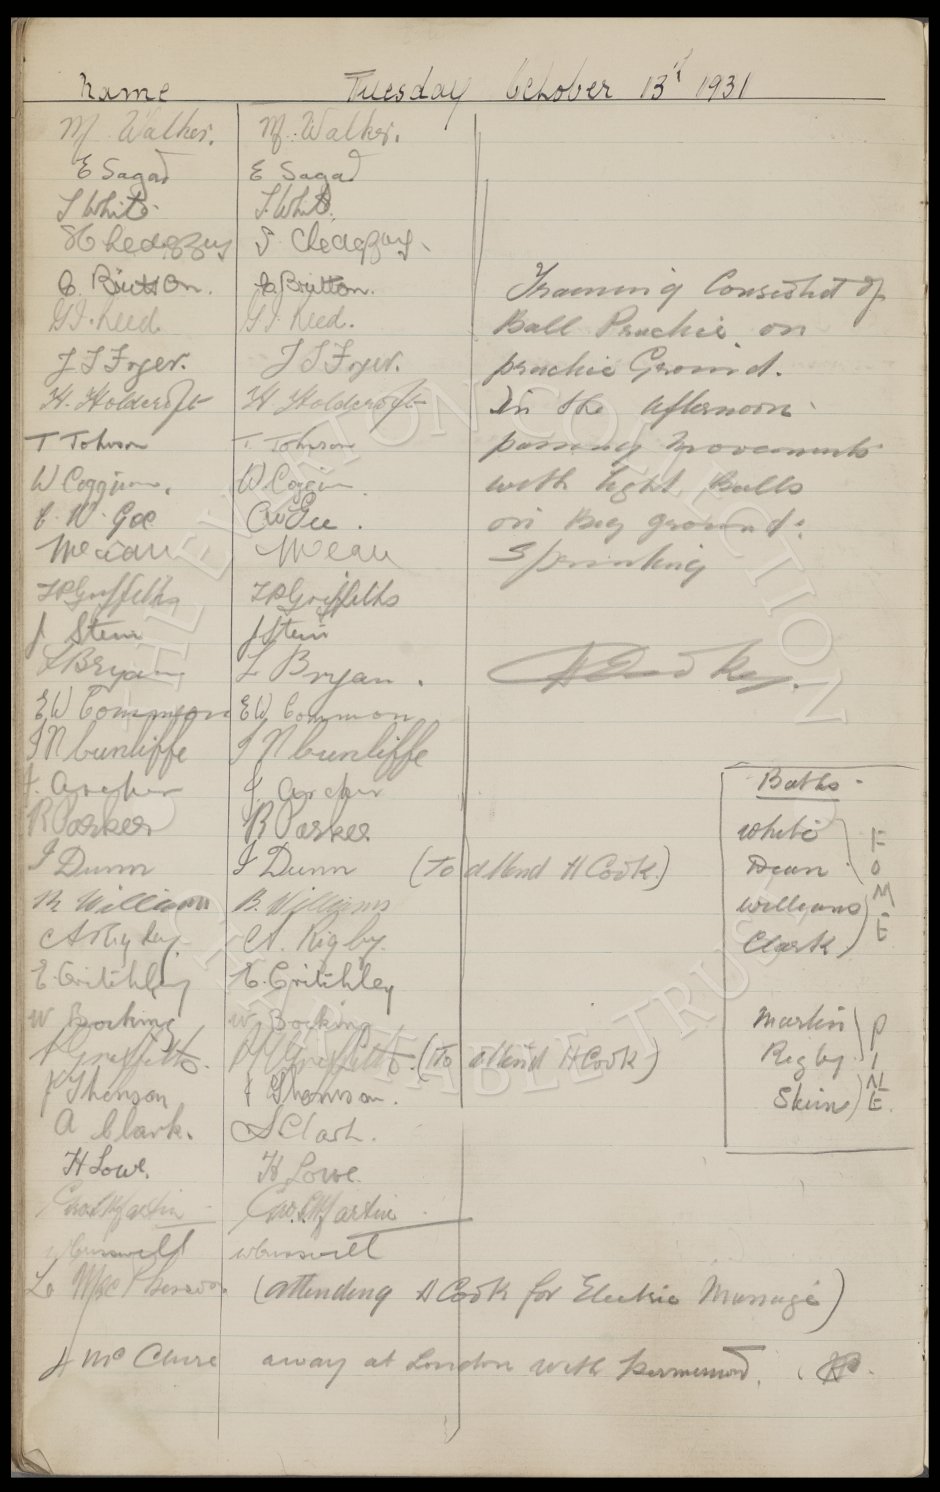 Name Tuesday October 13th 1931
M. Walker. M. Walker.
E Sagar E Sagar
T White T. White
S Chedgzoy S. Chedgzoy.
C. Britton. C Britton.
G I. Reed G I. Reed.
J T Fryer. J T Fryer.
H. Holdcroft H Holdcroft
T Johnson T Johnson
W Coggins. W Coggin
C. W. Gee C W Gee.
McCau McCau
T P Griffiths T P Griffiths
J Stein J Stein
L Bryan L Bryan.
E W Common E W Common
J N Cunliffe J N Cunliffe
J. Archer J Archer
R Parker R Parker
J Dunn J Dunn (To attend H Cook)
B Williams B. Williams
A Rigby A. Rigby.
E. Critchley E. Critchley
W Bocking W Bocking
P Griffiths. P H Griffiths. (To attend H Cook)
J Thomson J Thomson.
A Clark. A Clark.
H Lowe. H Lowe.
Geo. S Martin Geo. S Martin
W Cresswell W Cresswell
L MacPherson (attending H Cook for Electric Massage)
J McClure away at London with permission.
Training Consisted of
Ball Practice on
practice Ground.
In the afternoon
passing movements
with light Balls
on Big ground.
Sprinting
H E Cooke.
Baths
White
Dean
Williams
Clark
FOME
Martin
Rigby
Stein
PINE
THE EVERTON COLLECTION
CHARITABLE TRUST